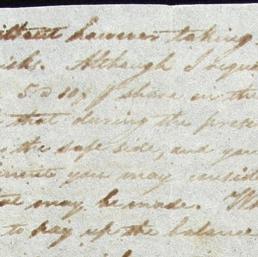 without however taking
Although I
5 D 10/ P share in the
that during the prese
the safe side, and you
you may consid
may be made.
to pay up the balance